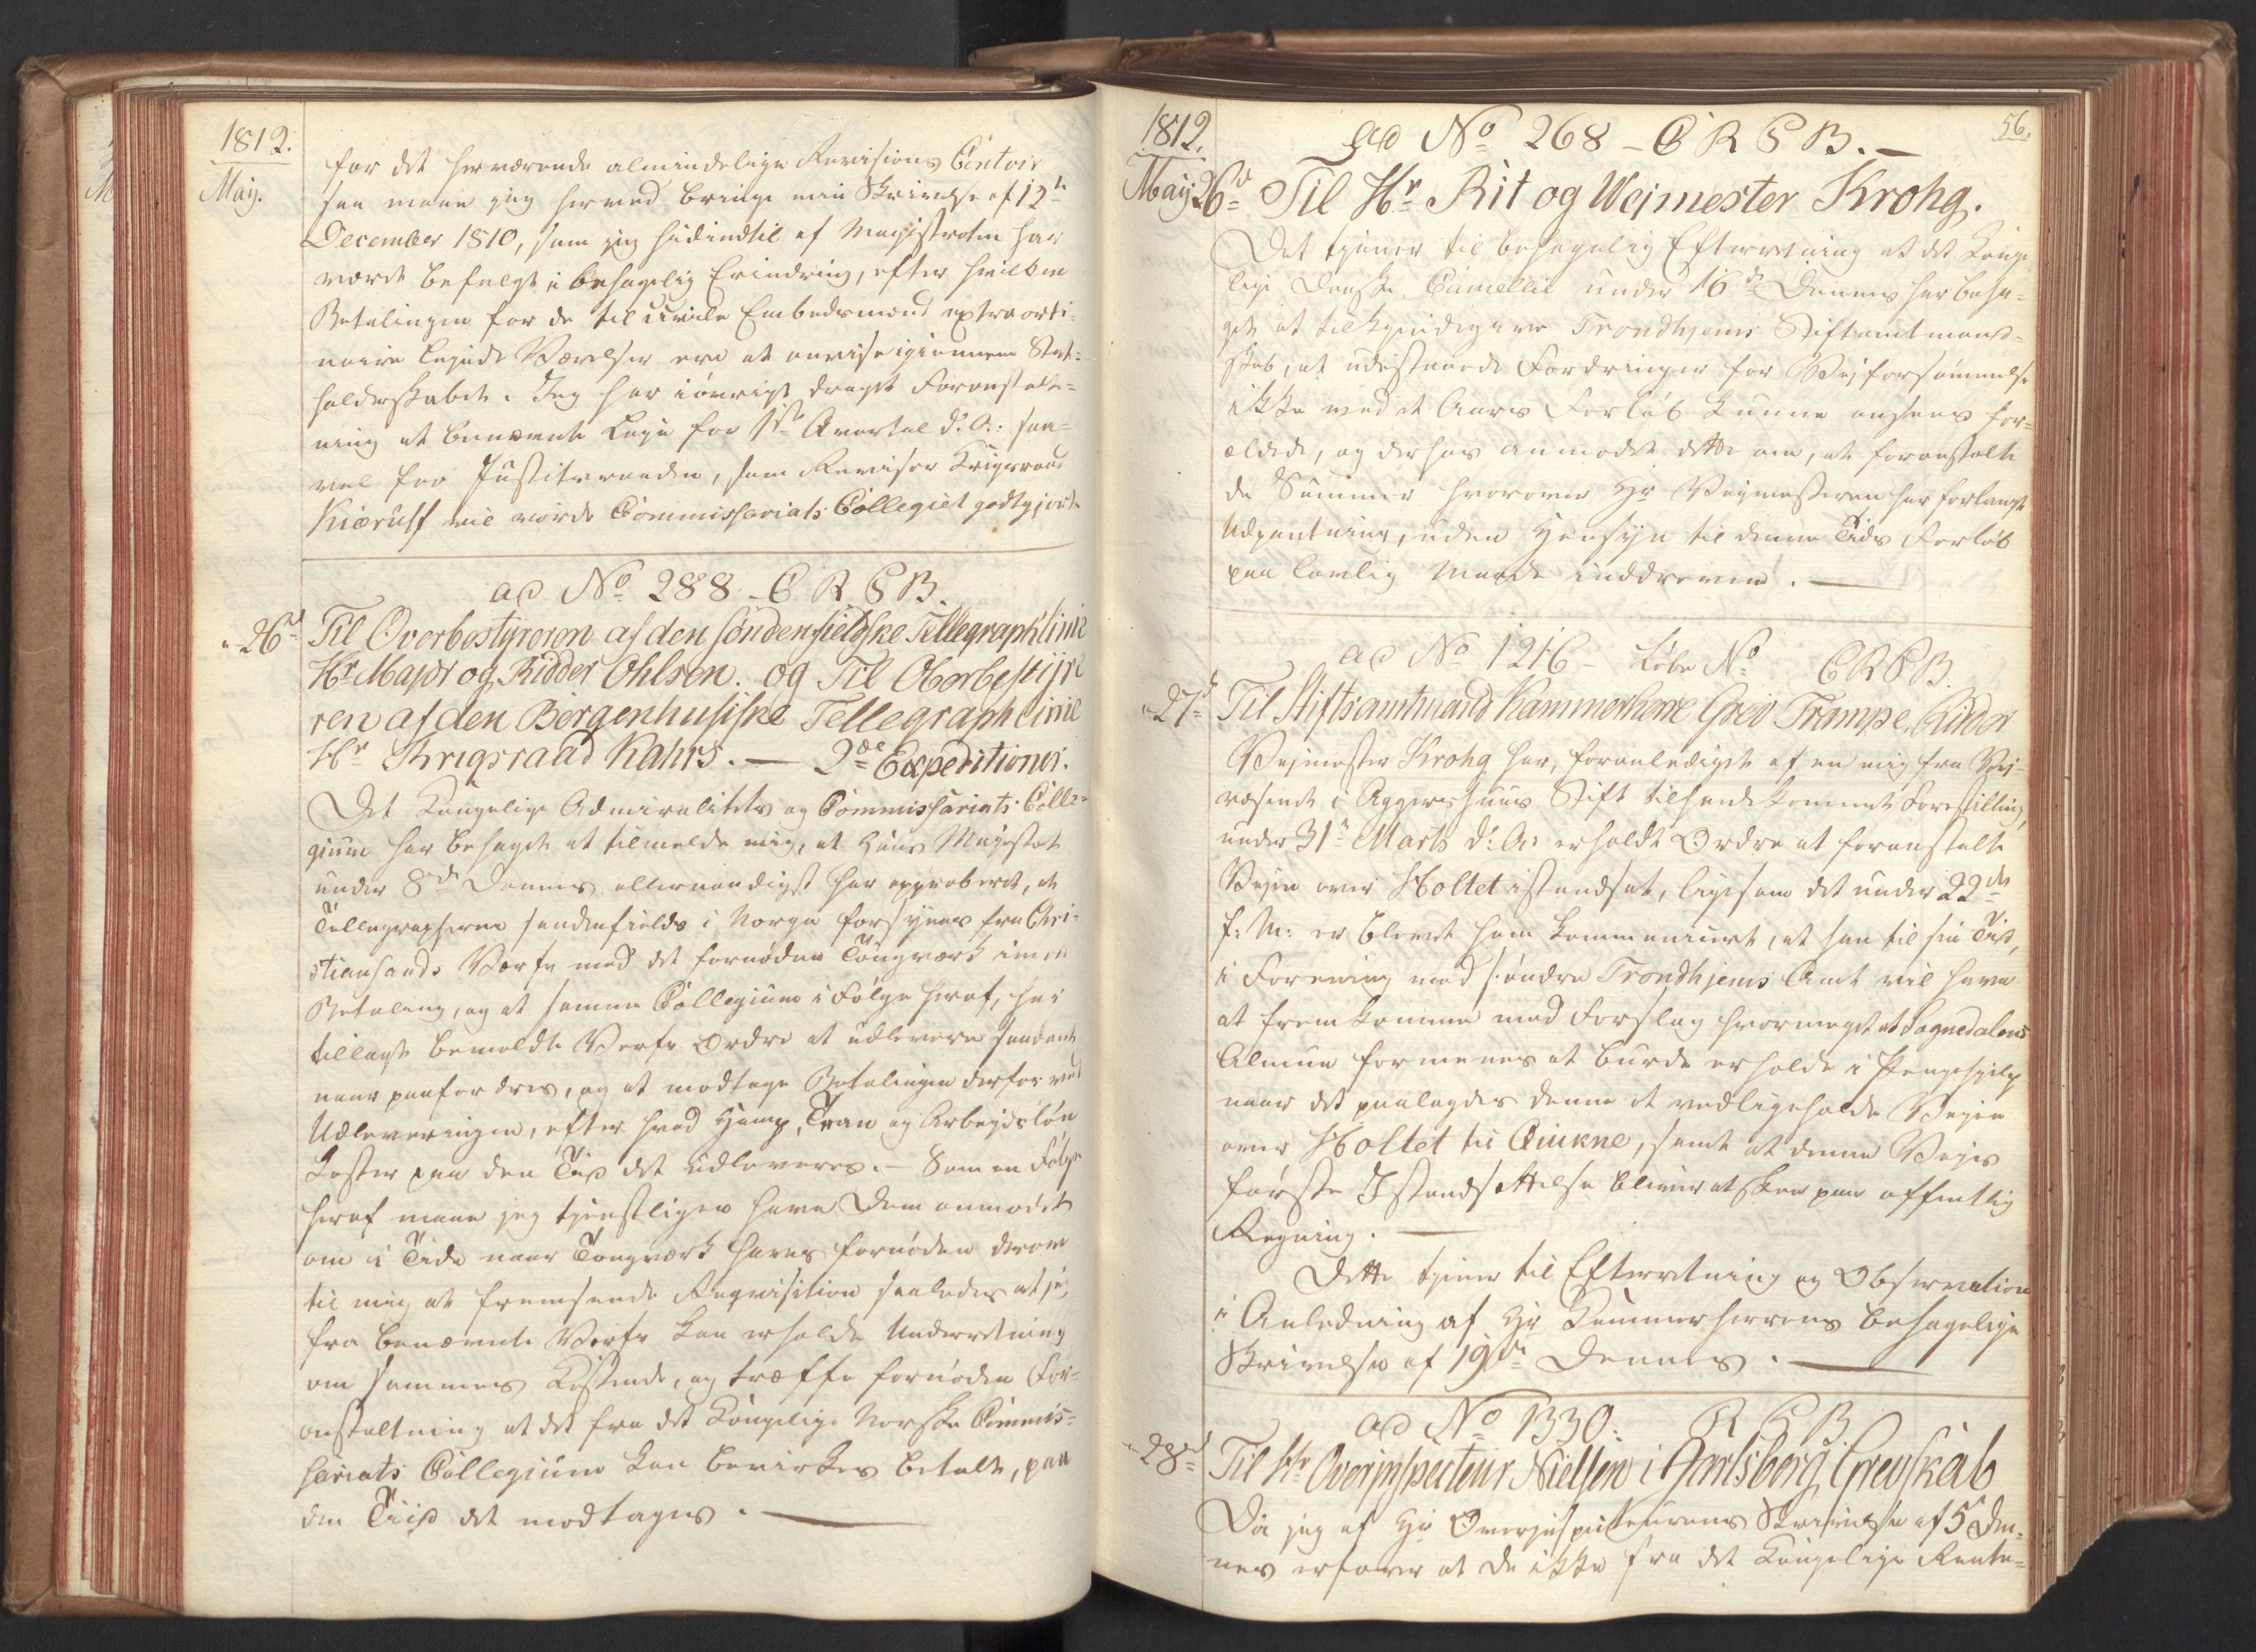 1812.
May.
for det herværende almindelige Revisions Contoir
saa maae jeg herved bringe min Skrivelse af 12te
December 1810, som jeg hidindtil af Magistraten har
været befalgt i behagelig Erindring, efter hvilken
Betalingen for de til civile Embedsmænd extraordi-
naire leyede Værelser ere at anvise igiennem Stat-
holderskabet. Jeg har iøvrigt draget Foranstalt-
ning at benævnte Leye for 1ste Qvartal d: A: saa-
vel for Justitsraaden, som Revisor Krigsraad
Kierulf vil vorde Commissariats Collegiet godtgjort
ad No 288 - C R S B.
- 26de Til Overbestyreren af den søndenfieldske Tellegraphlinie
Hr Major og Ridder Ohlsen. og Til Oberbestyre
ren af den Bergenhusiske Tellegraph Linie
Hr Krigsraad Kahrs. — 2de Expeditioner.
Det Kongelige Admiralitets og Commissariats-Colle-
gium har behaget at tilmelde mig, at Hans Majestæt
under 8de Dennes allernaadigst har approberet, at
Tellegrapherne søndenfields i Norge forsynes fra Chri-
stiansands Værfte med det fornødne Tougværk imod
Betaling, og at samme Collegium i Følge heraf, har
tillagt bemeldte Verft Ordre at udlevere saadant
naar paafordres, og at modtage Betalingen derfor ved
Udleveringen, efter hvad Hamp, Tran og Arbeydsløn
koster paa den Tid det udleveres. — Som en Følge
heraf maae jeg tjenstligen have Dem anmodet
om i Tide naar Tougværk haves fornøden derom
til mig at fremsende Reqvisition saaledes at jeg
fra benævnte Verft kan erholde Underretning
om sammes Kostende, og træffe fornøden For-
anstaltning at det fra det Kongelige Norske Commis-
sariats Collegium kan bevirkes betalt, paa
den Tiid det modtages. —
1812.
56.
ad No 268 - C R S B. —
May 26d Til Hr Rit og Wejmester Krohg.
Det tjener til behagelig Efterretning at det Konge-
lige Danske Cancellie under 16de Dennes har beha-
get at tilkjendegive Trondhjems Stiftamtmand-
skab, at udestaaende Fordringer for Vejforsømmelse
ikke ved et Aars Forløb kunne ansees for-
ældede, og derhos anmodet dette om, at foranstalte
de Summer hvorover Hr Vejmesteren har forlangt
Udpantning, uden Hensyn til denne Tids Forløb
paa lovlig Maade inddrevne. —
ad No 1216 - Løbe No C R S B.
- 27de Til Stiftsamtmand Kammerherre Grev Trampe, Ridder
Vejmester Krohg har, foranlediget af en mig fra Vej-
væsenet i Aggershuus Stift tilhændekommet Forestilling,
under 31te Marts d: A: erholdt Ordre at foranstalte
Vejen over Holtet istandsat, ligesom det under 22de
f: M: er blevet ham kommuniceret, at han til sin Tid,
i Forening med søndre Trondhjems Amt vil have
at fremkomme med Forslag hvormeget at Sognedalens
Almue formenes at burde erholde i Pengehjelp
naar det paalagdes denne at vedligeholde Vejen
over Holtet til Qvikne, samt at denne Vejs
første Istandsættelse bliver at skee paa offentlig
Regning. —
Dette tjener til Efterretning og Observation
i Anledning af Hr Kammerherrens behagelige
Skrivelse af 19de Dennes. —
ad No 1330. R S B
- 28de Til Hr Overinspecteur Nielsen i Jarlsberg Grevskab
Da jeg af Hr Overinspecteurens Skrivelse af 5 Den-
nes erfarer at De ikke fra det Kongelige Rente-